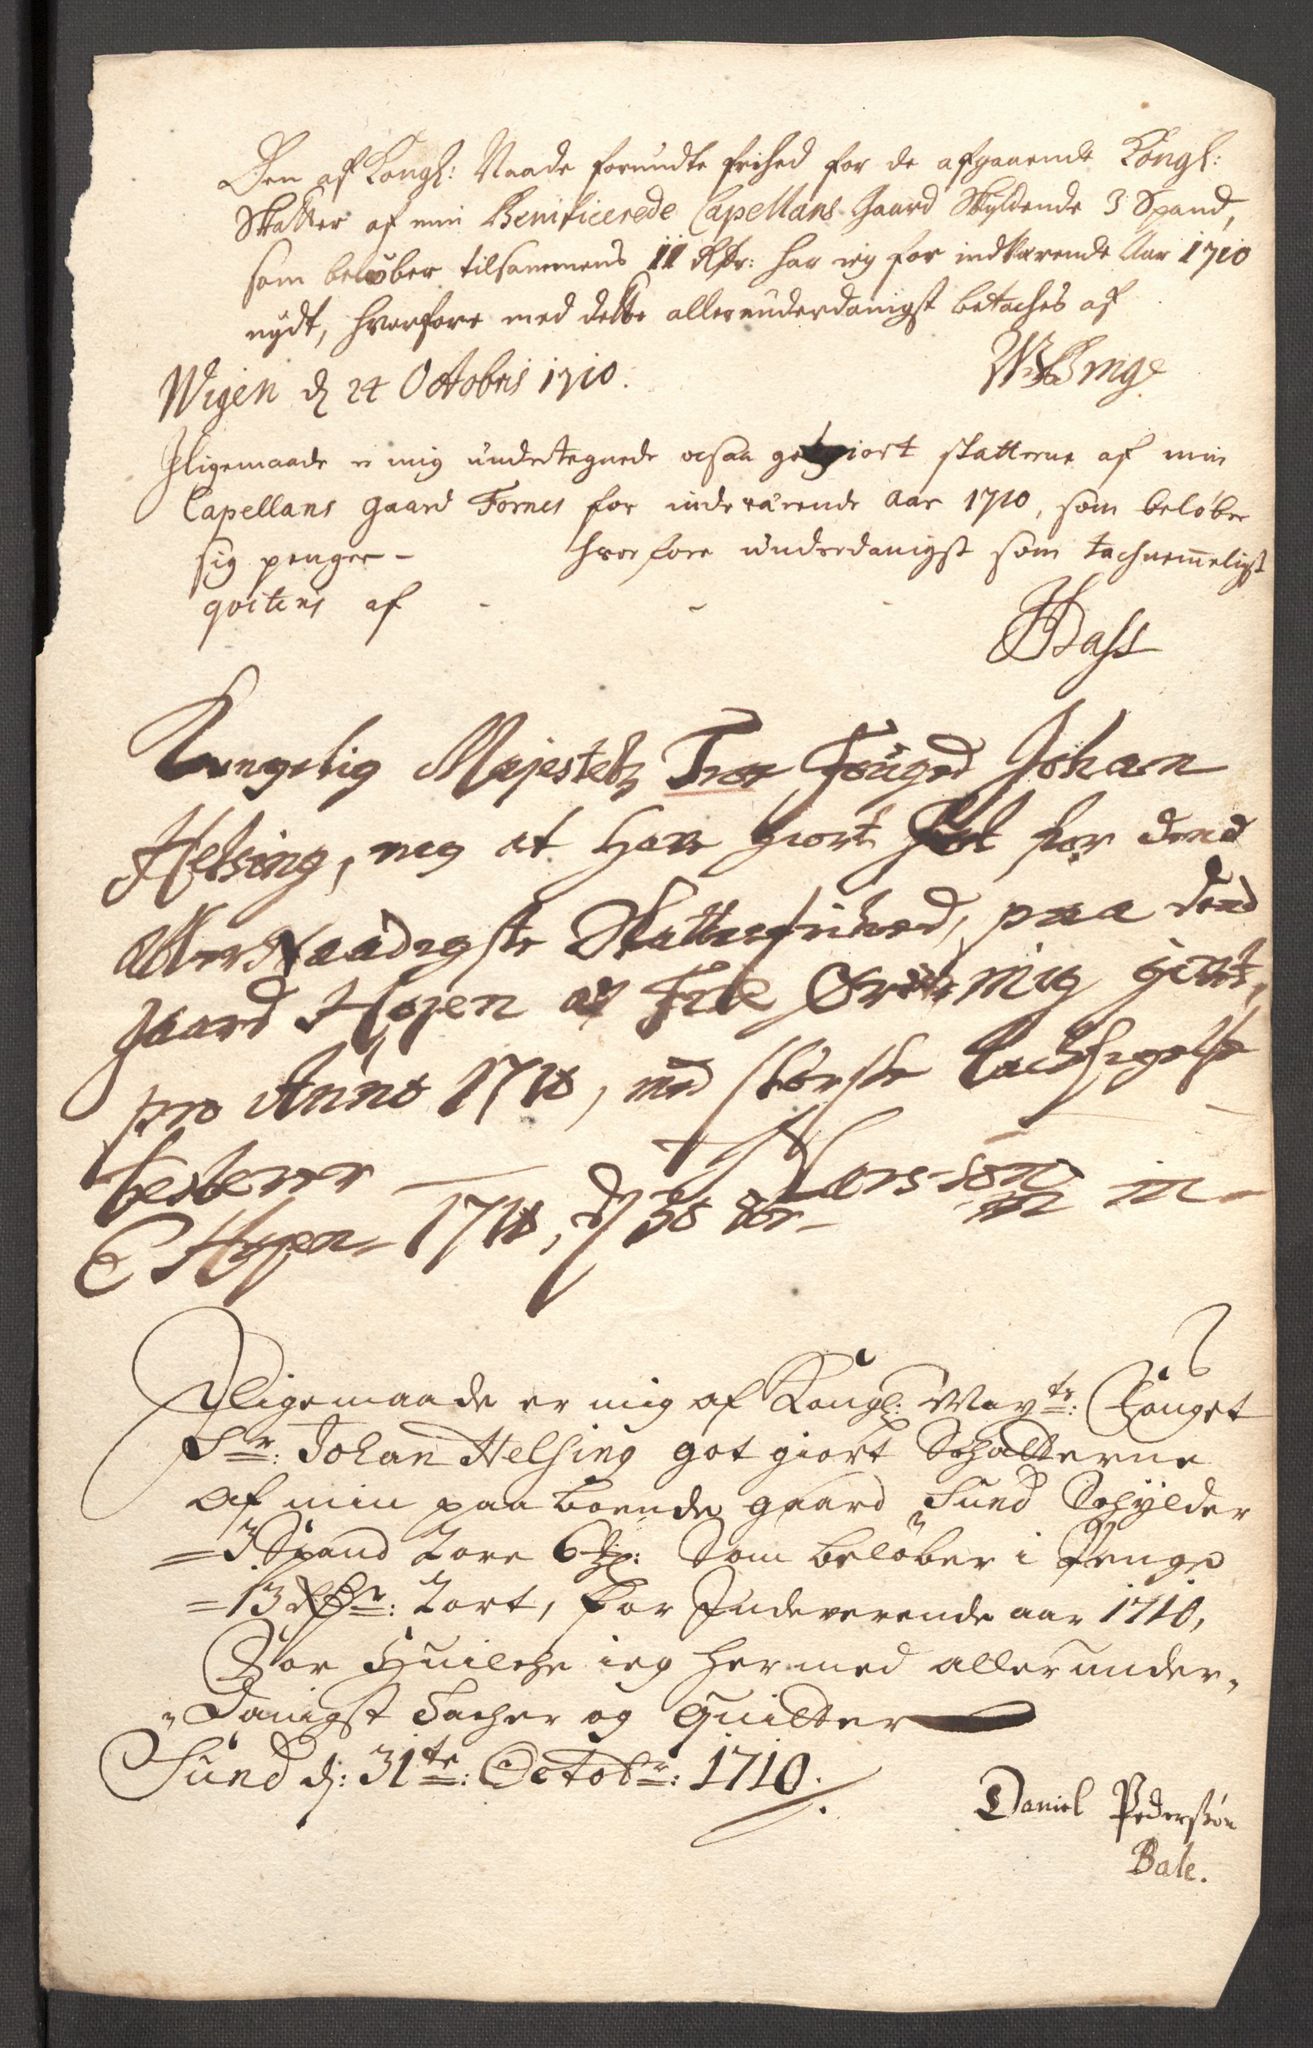 Den af Kongl: Naade forundte frihed for de afgaaende Kongl:
Skatter af min Beneficerede Capellans Gaard Skyldende 3 Spand,
som beløber tilsammens 11 Rdr: har ieg for indværende Aar 1710
nÿdt, hvorfore med dette allerunderdanigst betackes af
Wigen d 24 Octobris 1710.
Jligemaade er mig undertegnede ocsaa got giort skatterne af min
Capellans gaard Fornes for indeværende aar 1710, som beløber
sig penger - hvorfore underdanigst som tachnemmeligst
qviteris af
Dass
Kongelig Majestetz Foüged Johan
Helsing, mig at Have giort for dend
AllerNaadigste Skattefrihed, paa dend
gaard Højen
pro Anno 1710, med største Tacksigelse
bekiener
Højen 1710, d 30 8br Larssøn
Jligemaade er mig af Kongl: Maÿtr: Fouget
Sr: Johan Helsing got giort Schatterne
af min paa boende gaard Sund Schÿlder
=3 Spand 2 ore 6 : Som beløber i Penge
=13 Rdr: 2 ort, for Indeverende aar 1710,
For Huilche ieg hermed allerunder„
„danigst Tacher og Quitter
Sund d: 31te: Octobr: 1710.
Daniel Pederssøn
Bale.